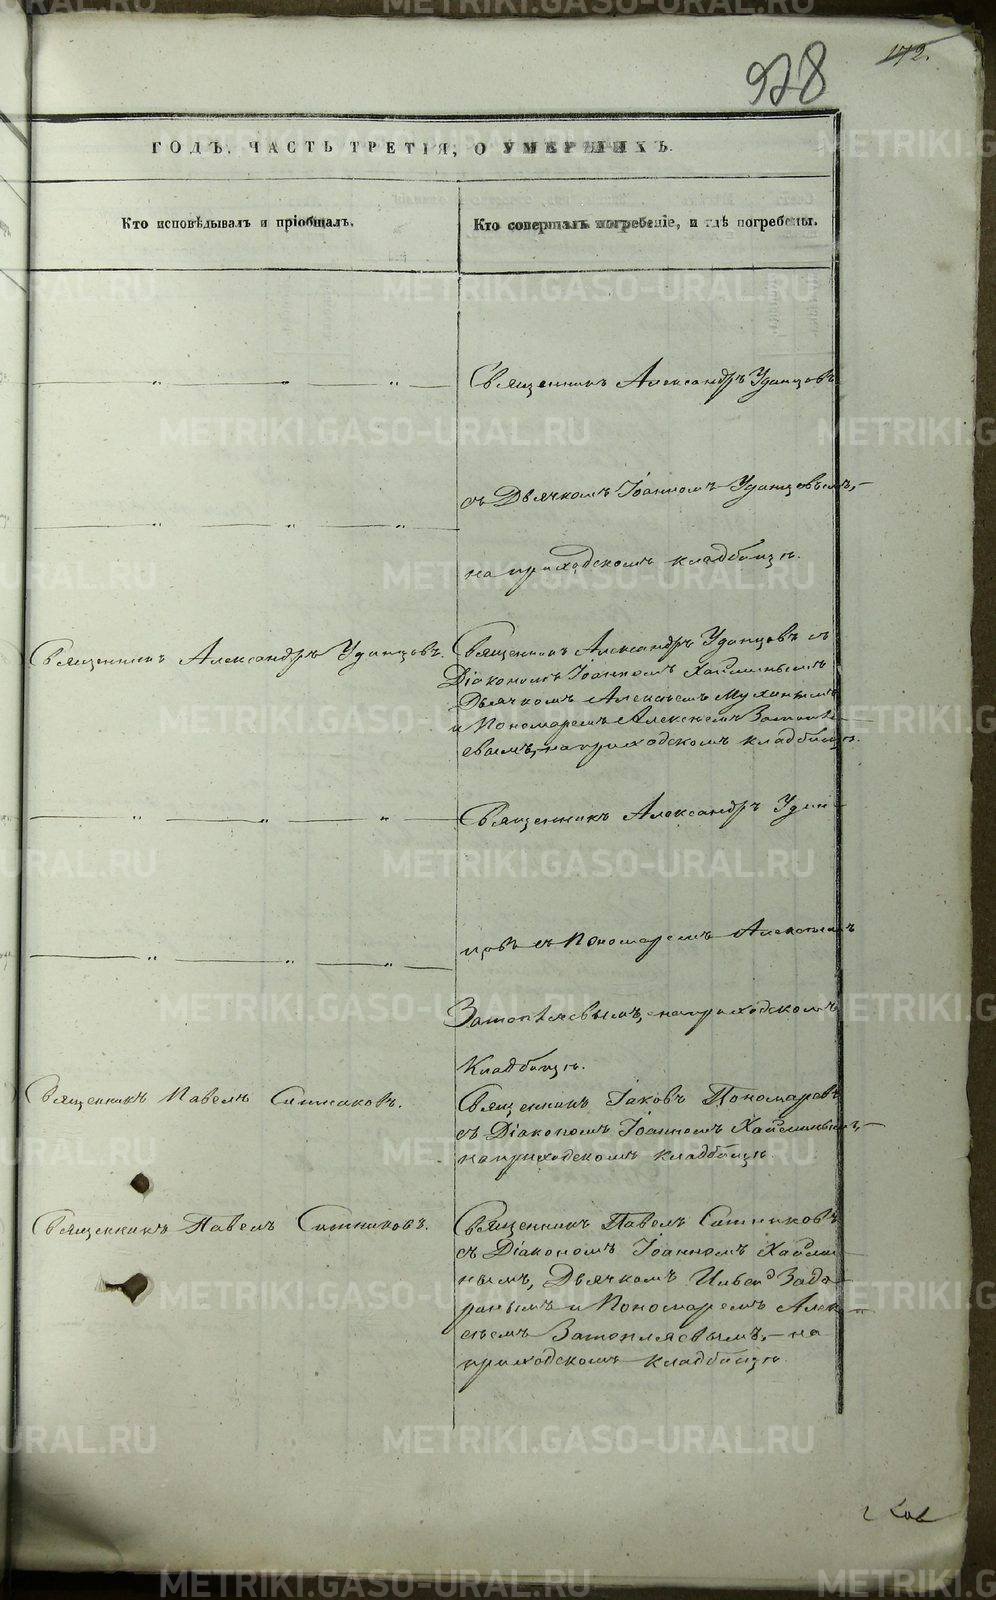 928
172.
ГОДЪ. ЧАСТЬ ТРЕТІЯ, О УМЕРШИХЪ.
Кто исповѣдывалъ и пріобщалъ.
Кто совершалъ погребеніе, и гдѣ погребены.
Священникъ Александръ Удинцовъ
съ Дьячкомъ Іоанномъ Удинцовымъ,
на приходскомъ кладбищѣ.
Священникъ Александръ Удинцовъ.
Священникъ Александръ Удинцовъ съ
Діакономъ Іоанномъ Хайдинымъ
Дьячкомъ Алексѣемъ
и Пономаремъ Алексѣемъ Затопля-
евымъ, на приходскомъ кладбищѣ.
Священникъ Александръ Удин-
цовъ съ Пономаремъ Алексѣемъ
Затопляевымъ, на приходскомъ
кладбищѣ.
Священникъ Павелъ Ситниковъ.
Священникъ Іаковъ Пономаревъ
съ Діакономъ Іоанномъ
на приходскомъ кладбищѣ.
Священникъ Павелъ Ситниковъ.
Священникъ Павелъ Ситниковъ
съ Діакономъ Іоанномъ
нымъ, Дьячкомъ
и Пономаремъ Алек-
сѣемъ Затопляевымъ, на
приходскомъ кладбищѣ.
METRIKI.GASO-URAL.RU